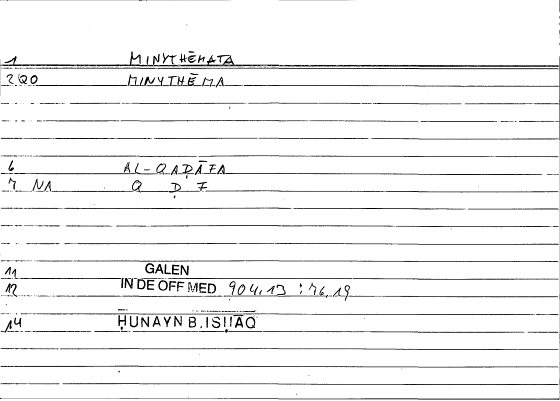 1 MINYTHĒMATA
2 QO MINYTHĒMA
6 AL-QAḌĀFA
7 NA Q Ḍ F
11 GALEN
12 IN DE OFF MED 904.13 : 76.19
14 ḤUNAYN B. ISḤĀQ